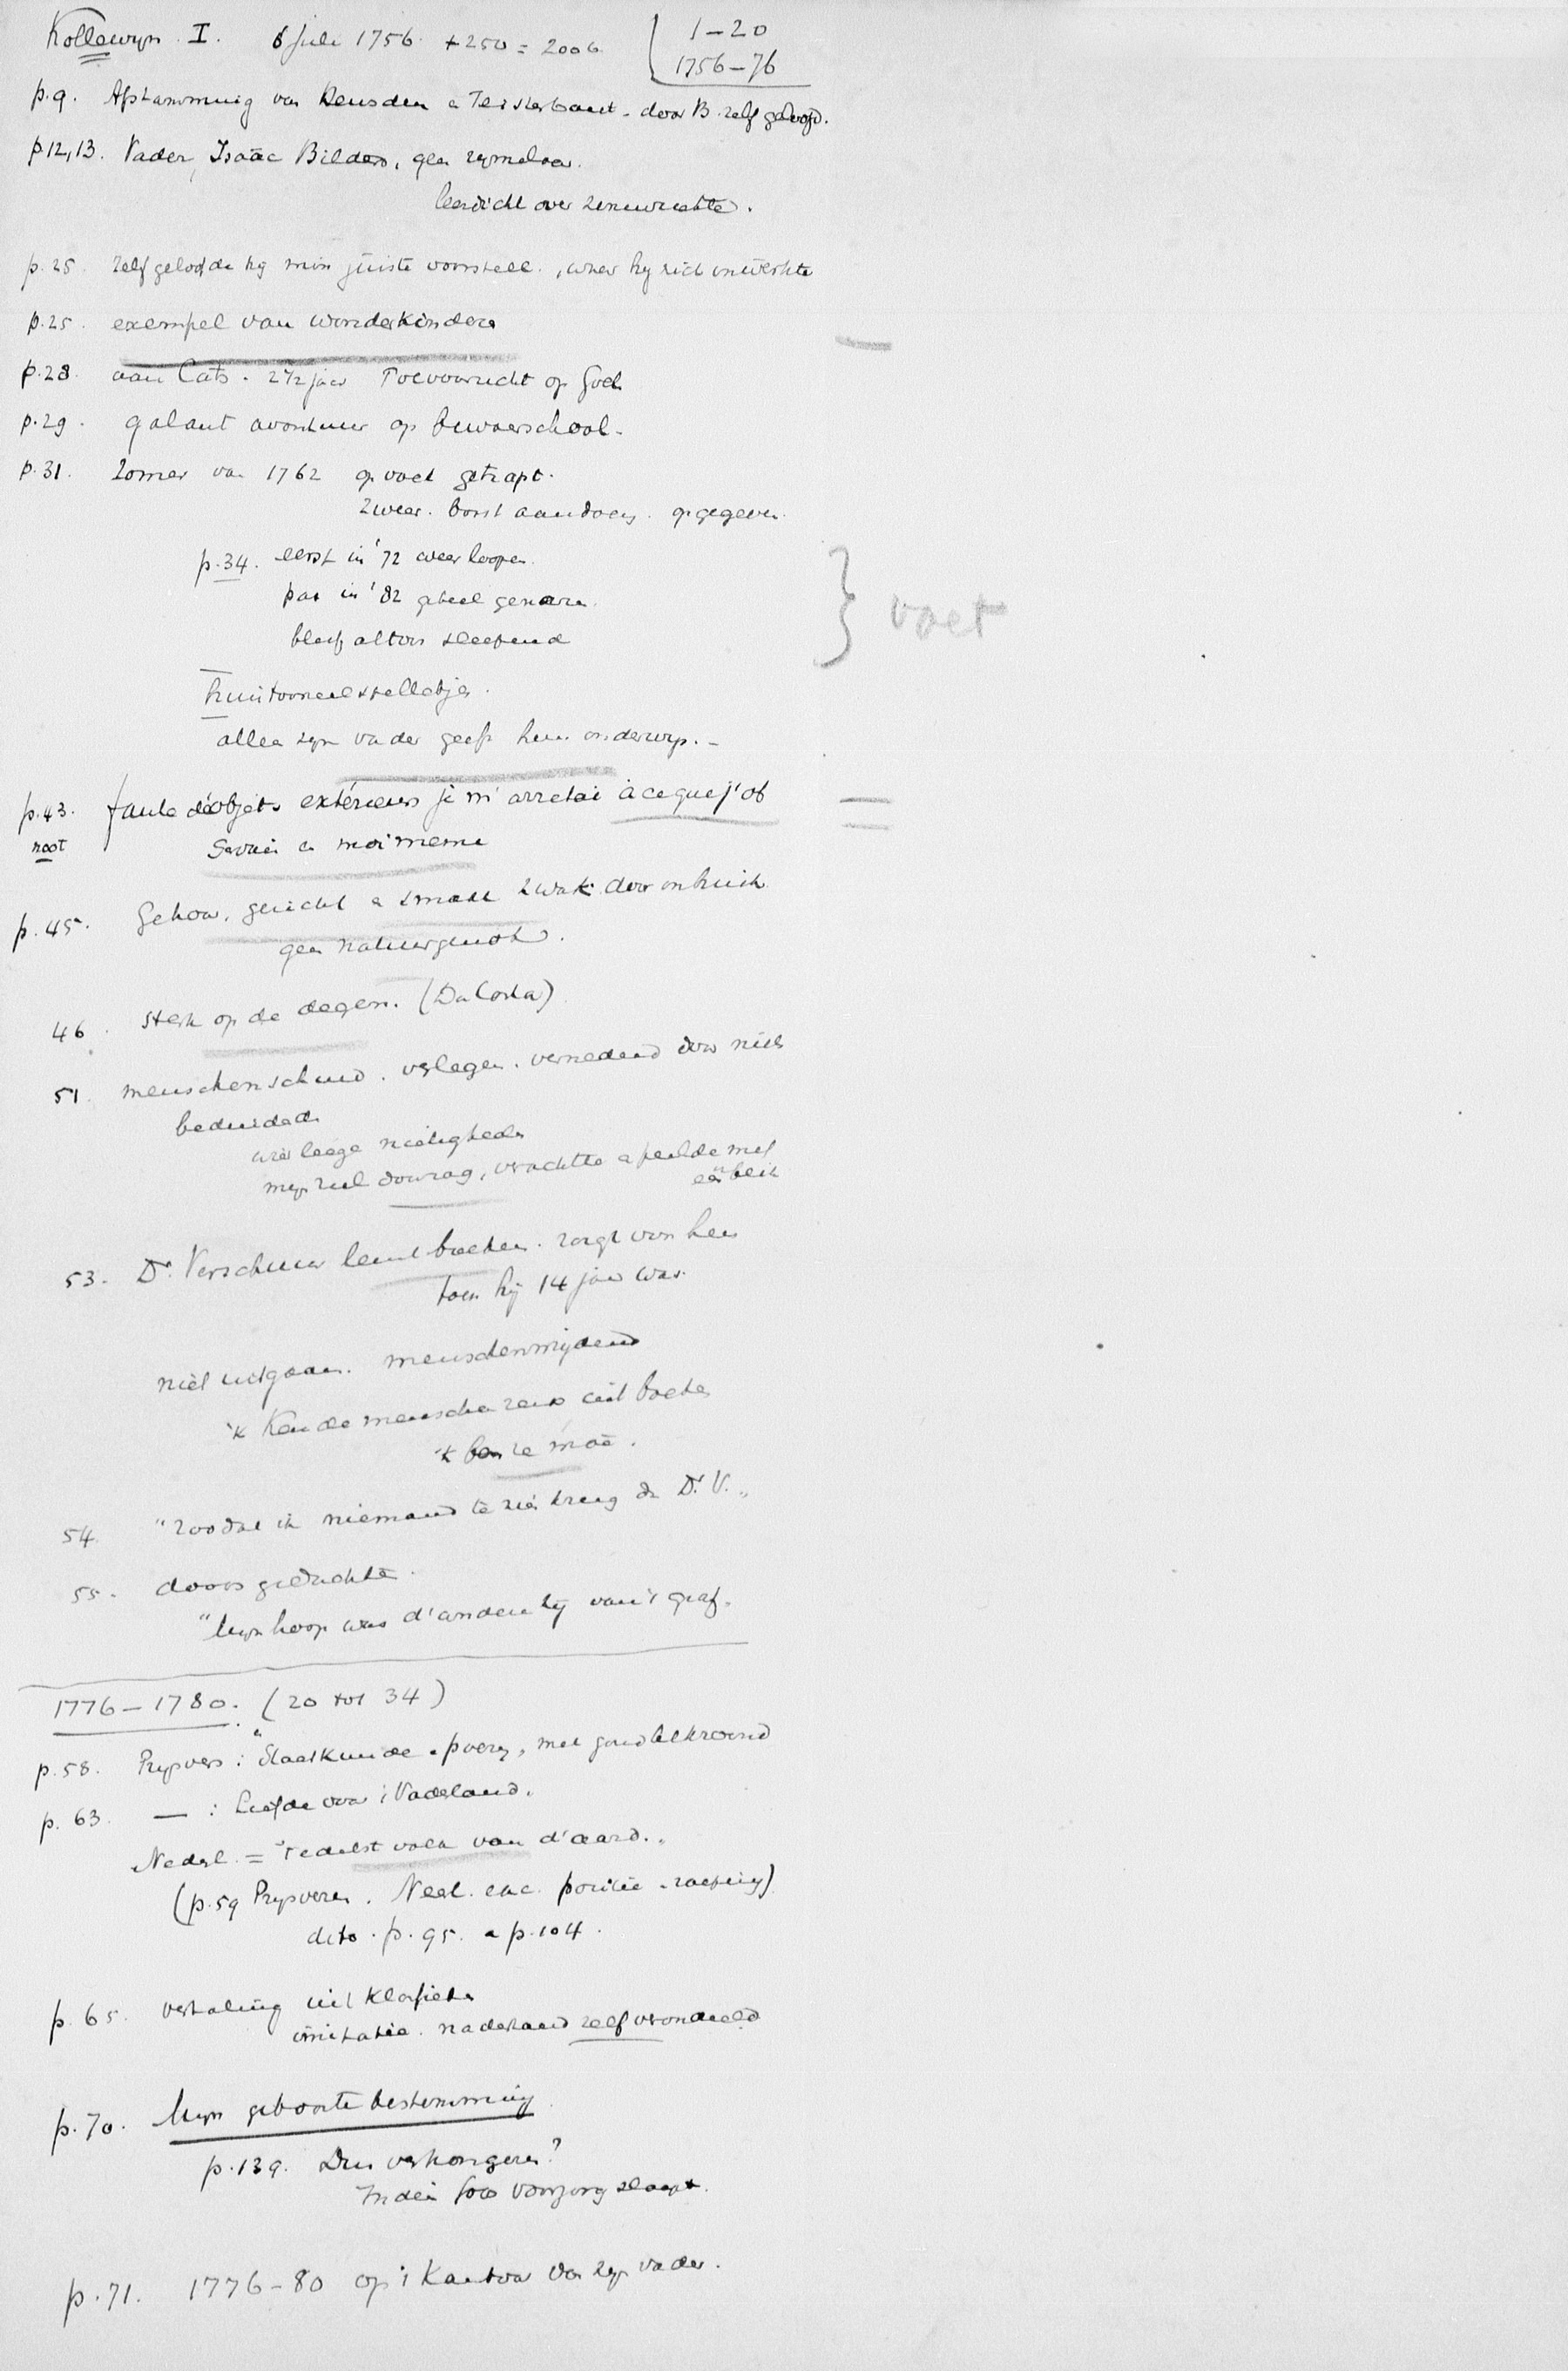 Kollewijn I. 6 Juli 1756. +250 = 2006. 1–20
1756–76
p.9. Afstamming van Heusden en Teisterbant. door B. zelf geloofd.
p12,13. Vader, Isaäc Bilder, geen rymelaar.
leerdicht over zenuwziekte.
p. 25. Zelf geloofde hij min juiste voorstell.,
p.25. exempel van wonderkinderen
p.28. aan Cats. 2½ jaar Toevoorzicht op God
p.29. galant avontuur op bewaarschool.
p.31. Zomer van 1762 op voet getrapt.
Zware borst aandoen. opgegeven.
p.34. eerst in '72 weer loopen.
pas in '82 geheel genezen.
bleef altoos sleepend
} voet
huistooneelstelletje.
alleen zijn vader geeft hem onderwijs. –
p.43. faute d'objets extérieurs je m'arretai à ce que j'ob
noot servai en moi meme
p.45. Gehoor, gezicht en smaak zwak door onbruik
geen natuurgenot.
46. sterk op de degen. (Da Costa)
51. menschenschuw. verlegen. vernederd door niets
beduidende
lage nietigheden
mijn ziel doorzag, verachtte en peilde met
één blik
53. Dr. Verschuur leent boeken. zorgt voor hem
toen hij 14 jaar was.
niet uitgaan. menschenmijdend
'k Kende menschen reeds uit boeken
'k ben ze moê.
54. "zoodat ik niemand te zien kreeg dan Dr. V."
55. doodsgedachten.
"Mijn hoop was d'andere zij van 't graf.
1776–1780. (20 tot 34)
p.58. Prijsvers: "Staatkunde en poëzy, met goud bekroond
p. 63. — : Liefde voor 't Vaderland.
Nederl. = 't edelst volk van d'aard."
(p.59 Prijsverzen. Neerl. enc. positie - roeping)
dito. p. 95. en p.104.
p. 65. vertaling uit Klassieken
imitatie. naderhand zelf veroordeeld
p.70. Mijn geboorte bestemming
p.139. Dus verhongeren?
Indien God voorzorg slaapt.
p.71. 1776–80 op 't Kantoor van zijn vader.